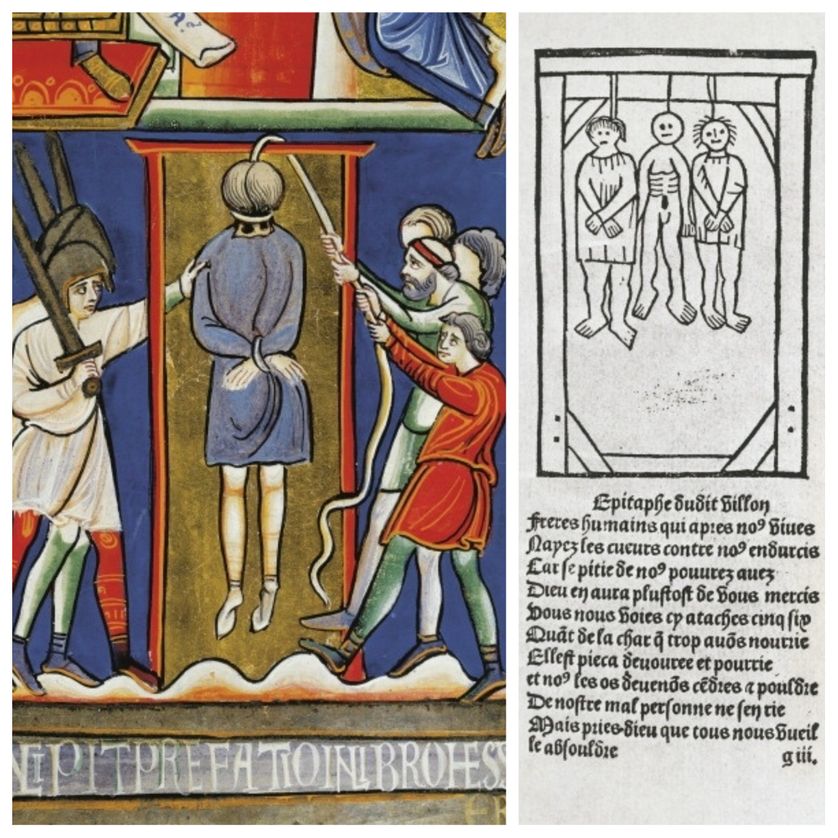 NCIPITPREFATIOINLIBROHESS
Epitaphe dudit Villon
Freres humains qui apres no⁹ viues
Nayez les cueurs contre no⁹ endurcis
Car se pitie de no⁹ pouurez auez
Dieu en aura plustost de vous mercis
Vous nous voies cy ataches cinq six
Quāt de la char q̄ trop auōs nourrie
Ellest pieca deuouree et pourrie
et no⁹ les os deuenōs cēdres ⁊ pouldre
De nostre mal personne ne sen rie
Mais pries dieu que tous nous vueil
le absouldre g iii.